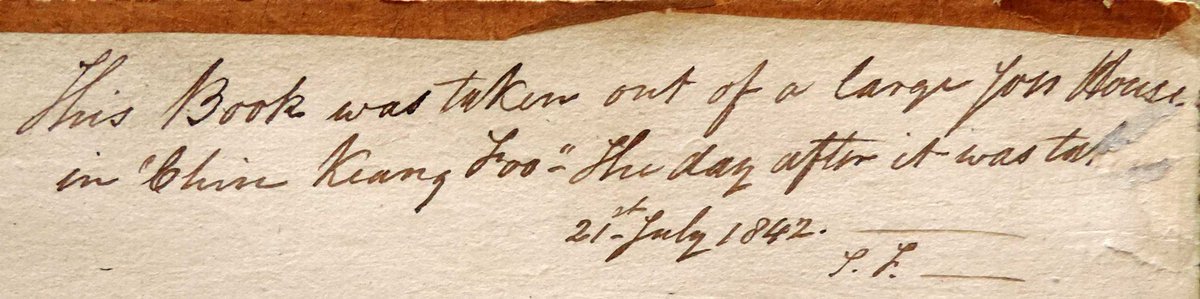 This Book was taken out of a large Joss House
in "Chin Keang Foo" The day after it was tak
21st July 1842.
S. F.